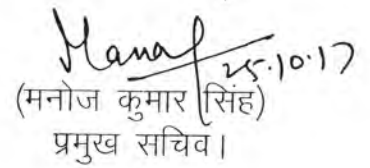 Manoj
25.10.17
(मनोज कुमार सिंह)
प्रमुख सचिव।